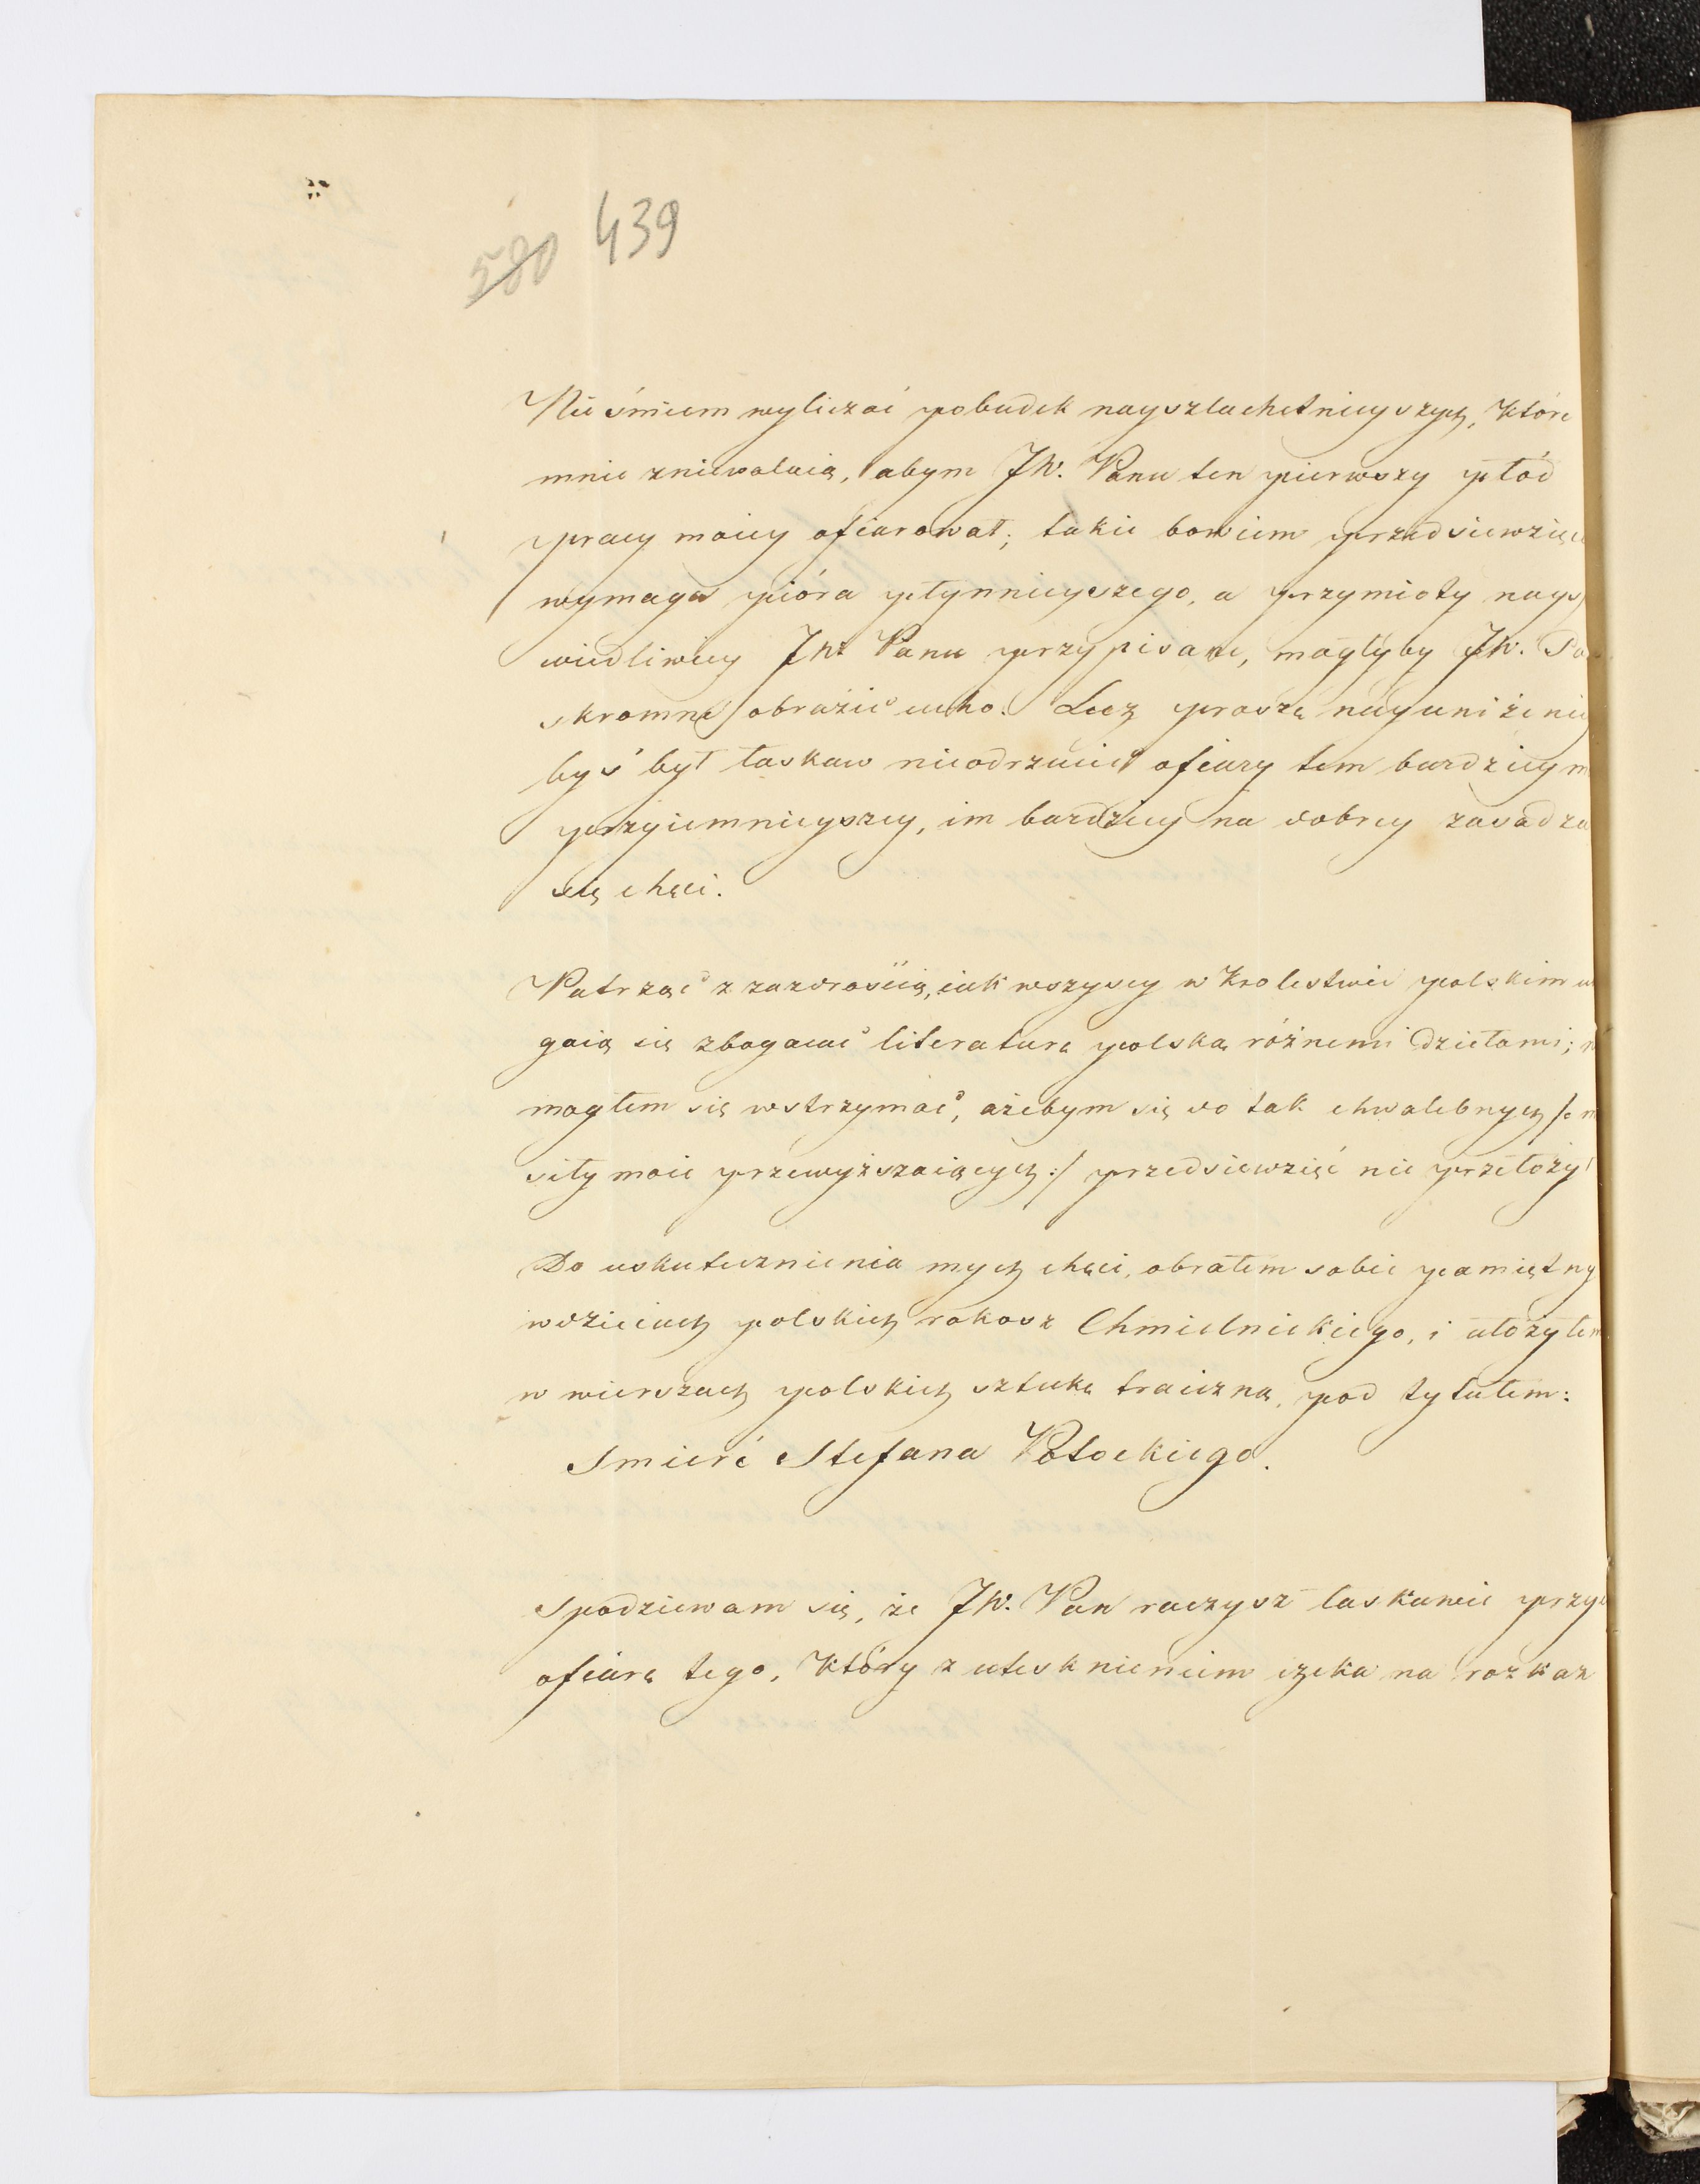 580 439
Nie śmiem wyliczać pobudek nayszlachetnieyszych, które
mnie zniewalaią, abym JW. Panu ten pierwszy płód
pracy moiey ofiarował; takie bowiem przedsiewzięci
wymaga pióra płynnieyszego, a przymioty nays
wiedliwiey JW. Panu przypisane, mogłyby JW. Pa
skromne obrazić ucho. Lecz proszę nayuniżeniey
byś był łaskaw nieodrzucić ofiary tem bardziey m
przyiemnieyszey, im bardziey na dobrey zasadza
się chęci.
Patrząc z zazdrością, iak wszyscy w Krolestwie polskim u
gaią się zbogacać literaturę polską różnemi dziełami; n
mogłem się wstrzymać, ażebym się do tak chwalebnych /: n
siły moie przewyższaiących :/ przedsiewzięć nie przełoży
Do uskutecznienia mych chęci, obrałem sobie pamiętny
w dzieiach polskich rokosz Chmielnickiego, i ułożyłem
w wierszach polskich sztukę traiczną, pod tytułem:
Smierć Stefana Potockiego.
Spodziewam się, że JW. Pan raczysz łaskawie przyi
ofiarę tego, który z utesknieniem czeka na rozkaz